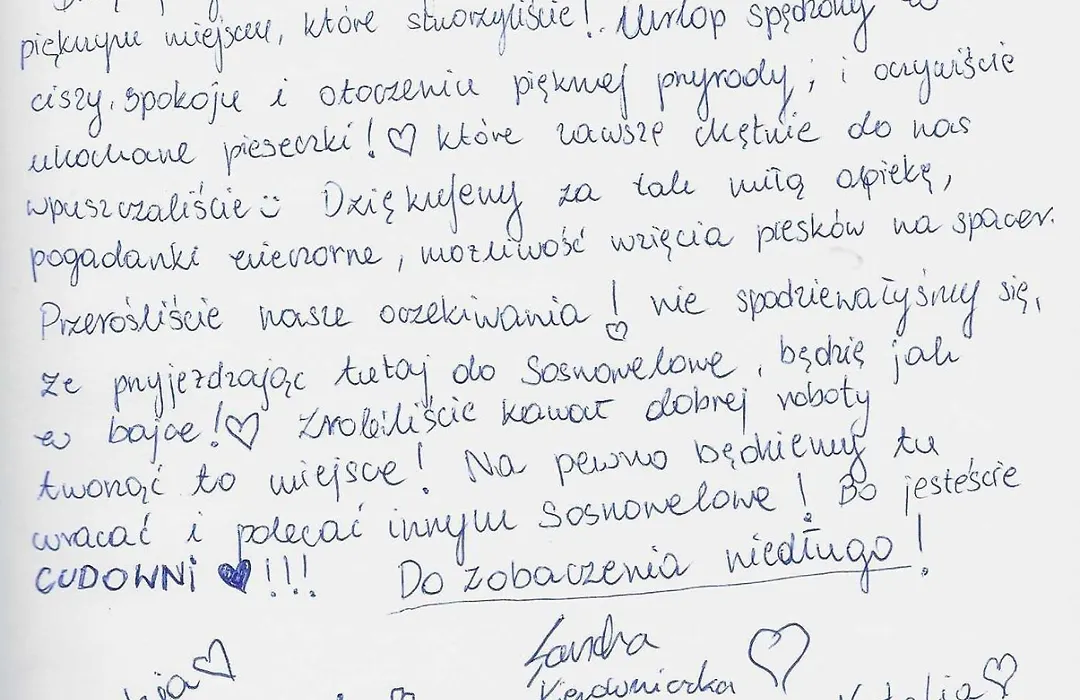 pięknym miejscu, które stworzyliście! Urlop spędzony w
ciszy, spokoju i otoczeniu pięknej przyrody, i oczywiście
ukochane pieseczki! ♡ które zawsze chętnie do nas
wpuszczaliście☺ Dziękujemy za tak miłą opiekę,
pogadanki wieczorne, możliwość wzięcia piesków na spacer.
Przerośliście nasze oczekiwania! ♡ nie spodziewałyśmy się,
że przyjeżdzając tutaj do Sosnowelowe, będzię jak
w bajce!♡ Zrobiliście kawał dobrej roboty
tworząć to miejsce! Na pewno będziemy tu
wracać i polecać innym Sosnowelowe! Bo jesteście
CUDOWNI ♥!!! Do zobaczenia niedługo!
Sandra ♡